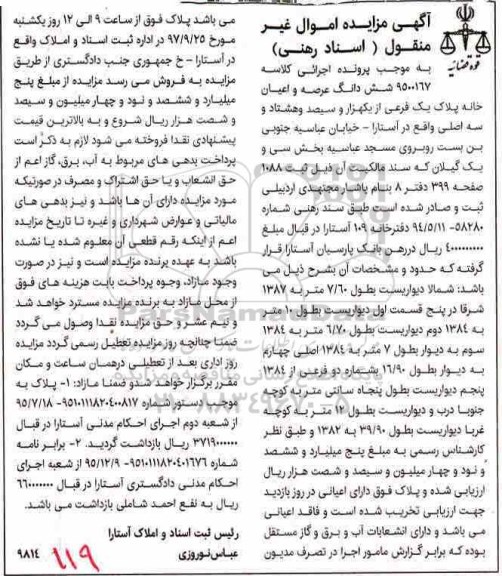 آگهی مزایده اموال غیر
منقول ( اسناد رهنی)
قوه قضائیه
به موجب پرونده اجرائی کلاسه
۹۵۰۰۱۶۷ شش دانگ عرصه و اعیان
خانه پلاک یک فرعی از یکهزار و سیصد وهشتاد و
سه اصلی واقع در آستارا - خیابان عباسیه جنوبی
بن بست روبروی مسجد عباسیه بخش سی و
یک گیلان که سند مالکیت آن ذیل ثبت ۱۰۸۸
صفحه ۳۹۹ دفتر ۸ بنام یاشار مجتهدی اردبیلی
ثبت و صادر شده است طبق سند رهنی شماره
۵۸۲۸۰- ۹۴/۵/۱۱ دفترخانه ۱۰۹ آستارا در قبال مبلغ
ریال دررهن بانک پارسیان آستارا قرار
گرفته که حدود و مشخصات آن بشرح ذیل می
باشد: شمالا دیواریست بطول ۷/۶۰ متر به ۱۳۸۷
شرقا در پنج قسمت اول دیواریست بطول ۱۰ متر
به ۱۳۸۴ دوم دیواریست بطول ۶/۷۰ متر به ۱۳۸۴
سوم به دیوار بطول ۷ متر به ۱۳۸۴ اصلی چهارم
به دیوار بطول ۱۶/۹۰ بشماره دو فرعی از ۱۳۸۴
پنجم دیواریست بطول پنجاه سانتی متر به کوچه
جنوبا درب و دیواریست بطول ۱۲ متر به کوچه
غربا دیواریست بطول ۳۹/۹۰ به ۱۳۸۲ و طبق نظر
کارشناس رسمی به مبلغ پنج میلیارد و ششصد
و نود و چهار میلیون و سیصد و شصت هزار ریال
ارزیابی شده و پلاک فوق دارای اعیانی در روز بازدید
جهت ارزیابی تخریب شده است و فاقد اعیانی
می باشد و دارای انشعابات آب و برق و گاز مستقل
بوده که برابر گزارش مامور اجرا در تصرف مدیون
می باشد پلاک فوق از ساعت ۹ الی ۱۲ روز یکشنبه
مورخ ۹۷/۹/۲۵ در اداره ثبت اسناد و املاک واقع
در آستارا - خ جمهوری جنب دادگستری از طریق
مزایده به فروش می رسد مزایده از مبلغ پنج
میلیارد و ششصد و نود و چهار میلیون و سیصد
و شصت هزار ریال شروع و به بالاترین قیمت
پیشنهادی نقدا فروخته می شود لازم به ذکر است
پرداخت بدهی های مربوط به آب، برق، گاز اعم از
حق انشعاب و یا حق اشتراک و مصرف در صورتیکه
مورد مزایده دارای آن ها باشد و نیز بدهی های
مالیاتی و عوارض شهرداری و غیره تا تاریخ مزایده
اعم از اینکه رقم قطعی آن معلوم شده یا نشده
باشد به عهده برنده مزایده است و نیز در صورت
وجود مازاد، وجوه پرداخت بابت هزینه های فوق
از محل مازاد به برنده مزایده مسترد خواهد شد
و نیم عشر و حق مزایده نقدا وصول می گردد
ضمنا چنانچه روز مزایده تعطیل رسمی گردد مزایده
روز اداری بعد از تعطیلی درهمان ساعت و مکان
مقرر برگزار خواهد شد و ضمنا مازاد: ۱- پلاک به
موجب دستور شماره ۹۵/۷/۱۸
از شعبه دوم اجرای احکام مدنی آستارا در قبال
ریال بازداشت گردید. ۲- برابر نامه
شماره ۹۵/۱۲/۹ از شعبه اجرای
احکام مدنی دادگستری آستارا در قبال
ریال به نفع احمد شاملی بازداشت می باشد.
رئیس ثبت اسناد و املاک آستارا
عباس نوروزی
۹۸۱۴
۱۱۹